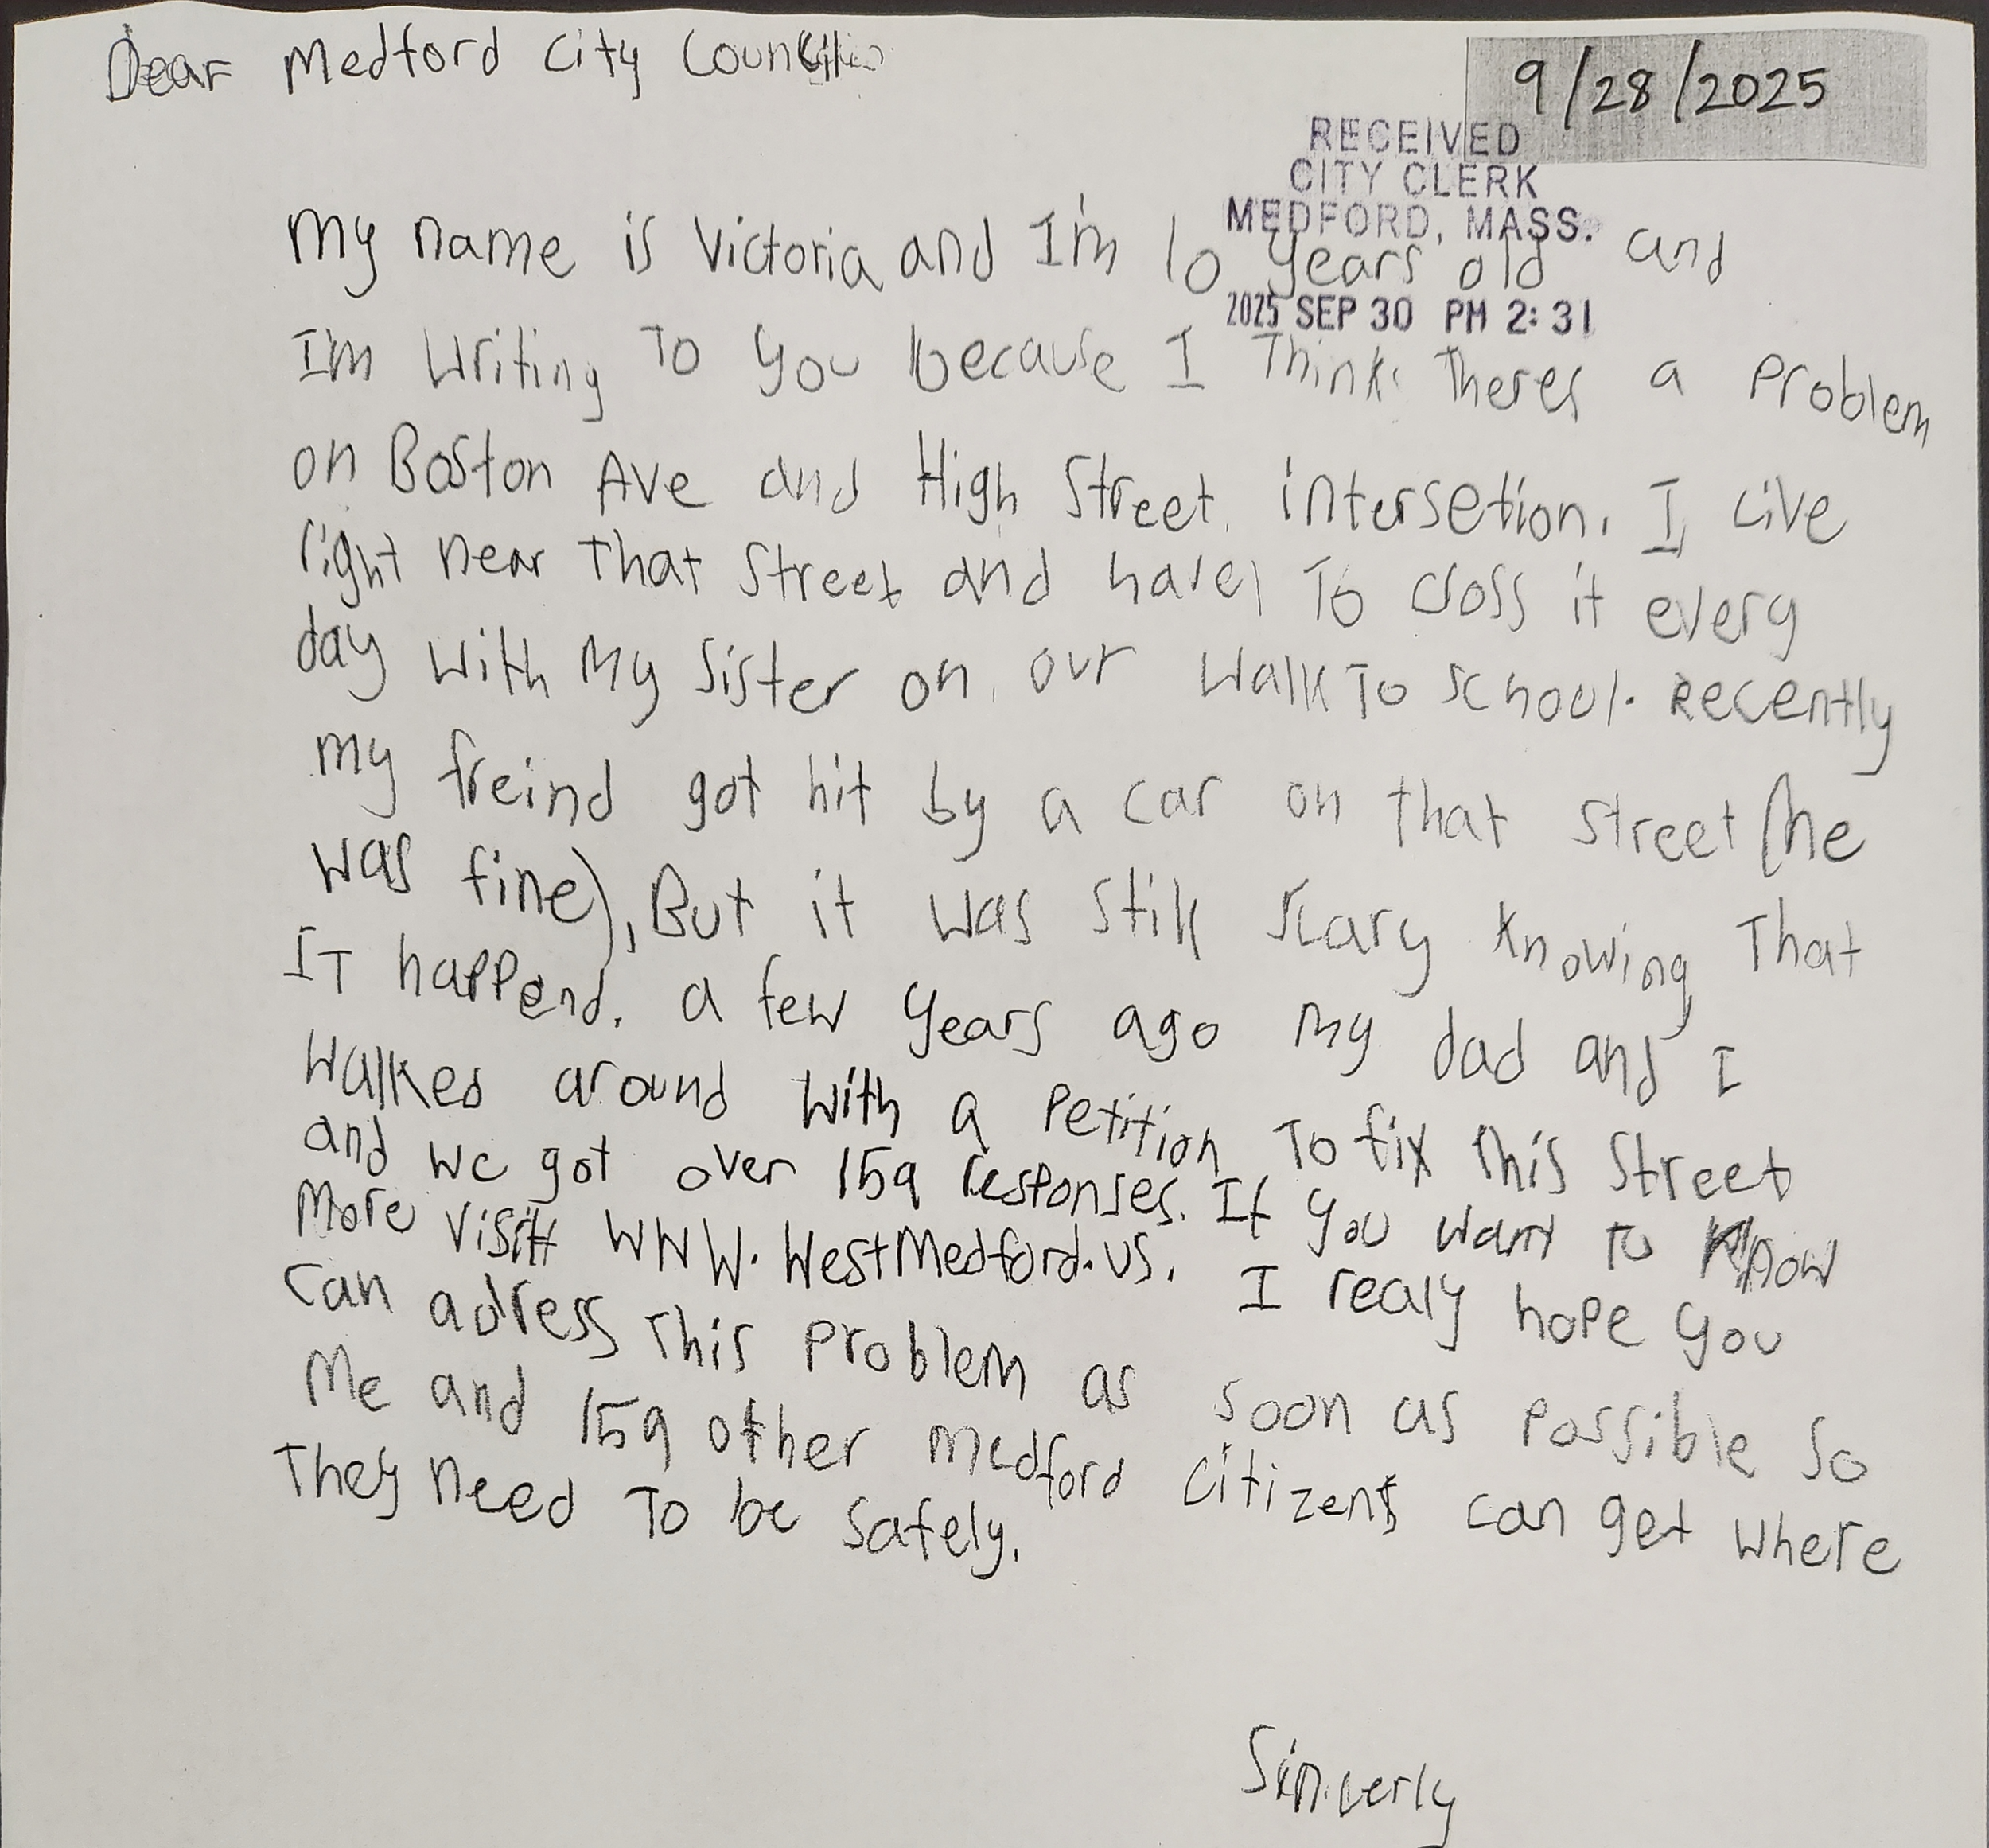 Dear Medford City Council
9/28/2025
RECEIVED
CITY CLERK
MEDFORD, MASS.
2025 SEP 30 PM 2:31
My name is Victoria and I'm 10 years old and
I'm writing To you because I Think Theres a Problem
on Boston Ave and High Street intersetion. I Live
right near That Street and have To cross it every
day with My Sister on our walk To school. Recently
my freind got hit by a car on that street (he
was fine), But it was still scary knowing That
IT happend. a few years ago My dad and I
Walked around with a Petition To fix This Street
and we got over 159 responses. If you want To Know
More visit WWW.WestMedford.us. I realy hope you
can adress This Problem as soon as Possible So
Me and 159 other Medford citizens can get where
They need To be safely.
Sincerly